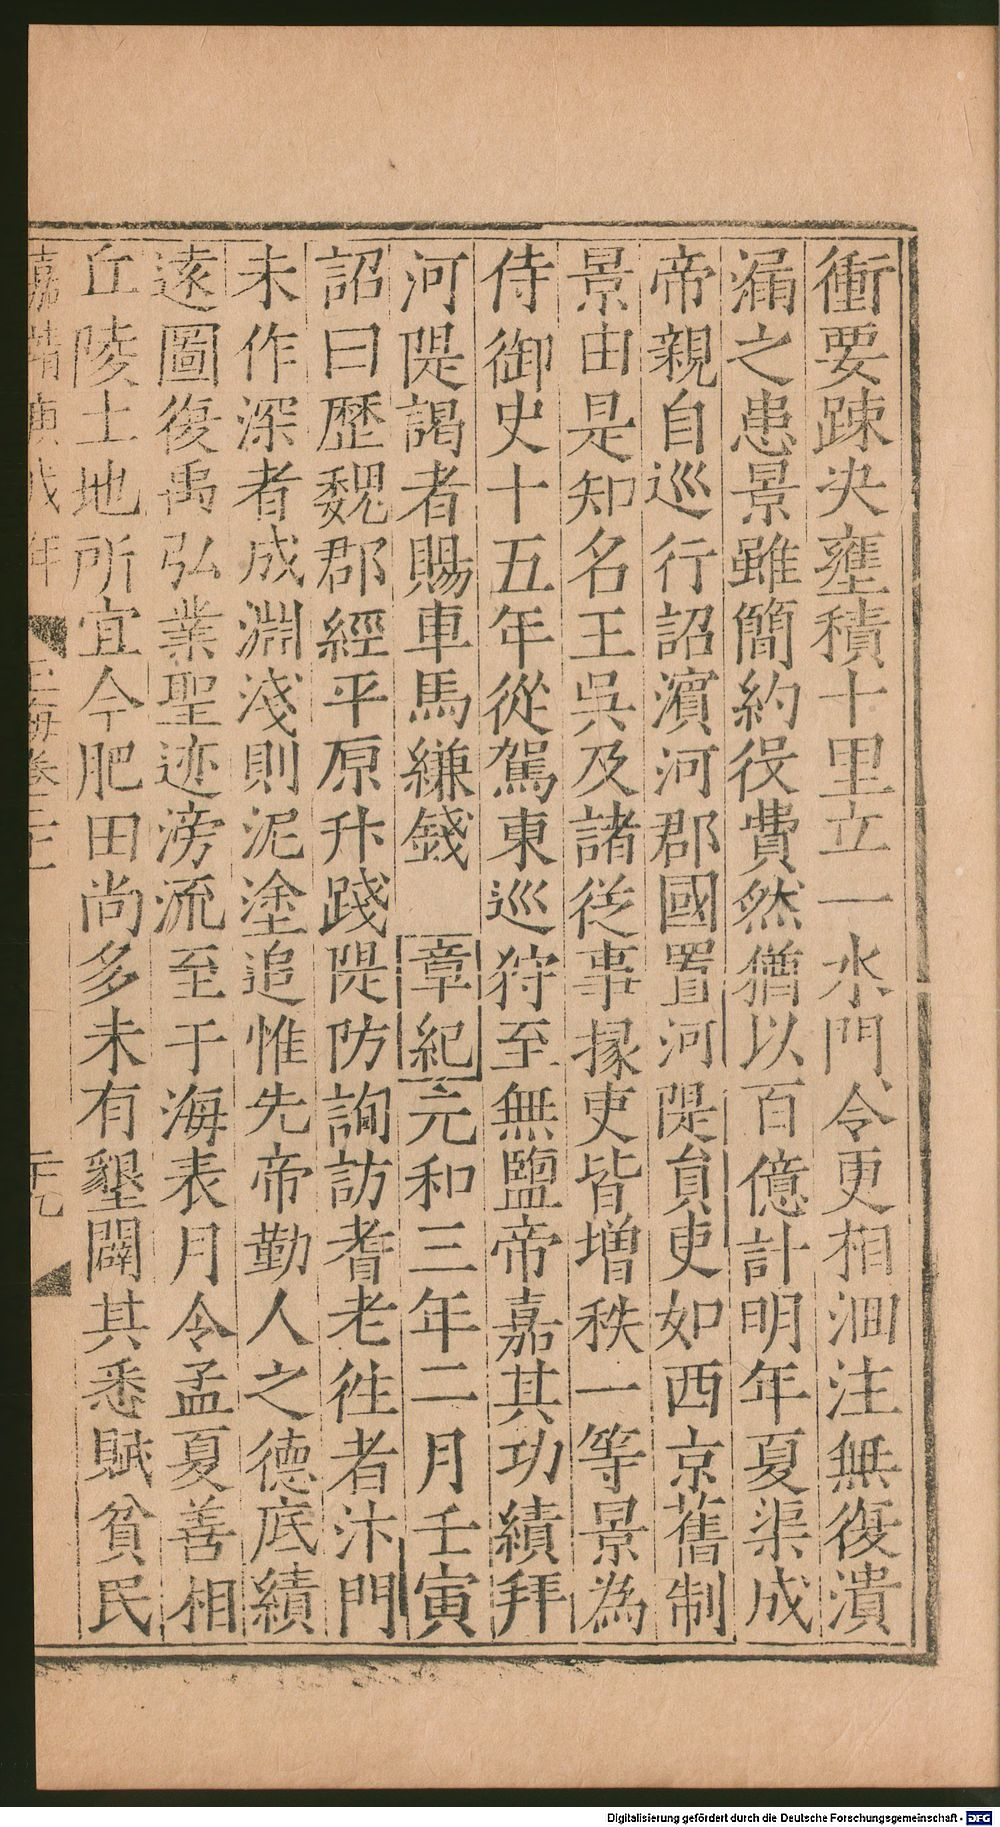 衝要踈决壅積十里立一水門令更相洄注無復潰
漏之患景雖簡約役費然猶以百億計明年夏渠成
帝親自巡行詔濱河郡國置河隄貟吏如西京舊制
景由是知名王吳及諸從事掾吏皆增秩一等景為
侍御史十五年從駕東巡狩至無鹽帝嘉其功績拜
河隄謁者賜車馬縑錢 章紀元和三年二月壬寅
詔曰歷魏郡經平原升踐隄防詢訪耆老徃者汴門
未作深者成淵淺則泥塗追惟先帝勤人之德底績
遠圖復禹弘業聖迹滂流至于海表月令孟夏善相
丘陵土地所宜今肥田尚多未有墾闢其悉賦貧民
嘉靖庚戌年 玉海卷二十二 二十九
Digitalisierung gefördert durch die Deutsche Forschungsgemeinschaft - DFG